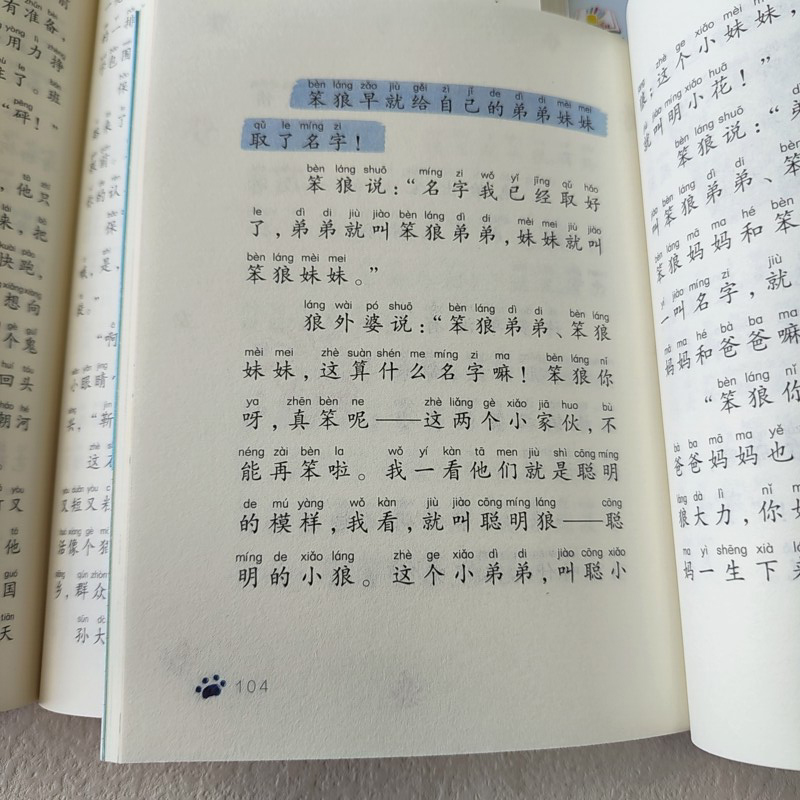 有准备，
用力挣
生了。班
“砰！”
，他只
来，把
快跑，
想向
个鬼
回头
朝河
又
他
国
天
“啊
小眼睛”
头，“新
这不
又短又
活像个猪
乡，群众
孙大
bèn láng zǎo jiù gěi zì jǐ de dì di mèi mei
笨狼早就给自己的弟弟妹妹
qǔ le míng zi
取了名字！
bèn láng shuō míng zi wǒ yǐ jīng qǔ hǎo
笨狼说：“名字我已经取好
le dì di jiù jiào bèn láng dì di mèi mei jiù jiào
了，弟弟就叫笨狼弟弟，妹妹就叫
bèn láng mèi mei
笨狼妹妹。”
láng wài pó shuō bèn láng dì di bèn láng
狼外婆说：“笨狼弟弟、笨狼
mèi mei zhè suàn shén me míng zi ma bèn láng nǐ
妹妹，这算什么名字嘛！笨狼你
ya zhēn bèn ne zhè liǎng gè xiǎo jiā huo bù
呀，真笨呢——这两个小家伙，不
néng zài bèn la wǒ yí kàn tā men jiù shì cōng míng
能再笨啦。我一看他们就是聪明
de mú yàng wǒ kàn jiù jiào cōng míng láng cōng
的模样，我看，就叫聪明狼——聪
míng de xiǎo láng zhè ge xiǎo dì di jiào cōng xiǎo
明的小狼。这个小弟弟，叫聪小
104
zhè ge xiǎo mèi mei
狼；这个小妹妹，
jiào míng xiǎo huā
就叫明小花！”
bèn láng shuō
笨狼说：“弟
láng dì di
叫笨狼弟弟、笨
láng mā ma hé bèn
笨狼妈妈和笨
jiào míng zi jiù
一叫名字，就
mā ma hé bà ba ma
妈妈和爸爸嘛
bèn láng nǐ
“笨狼你
bà ba mā ma yě
爸爸妈妈也
láng dà lì nǐ
狼大力，你
ma yì shēng xià
妈一生下来